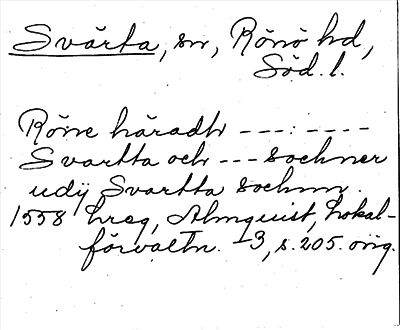 Svärta, sn, Rönö hd,
Söd. l.
Röne häradh ---:----
Svartta och --- sochner
udij Svartta sochnn.
1558 hreg, Almquist, Lokal-
förvaltn. I3, s. 205. orig.